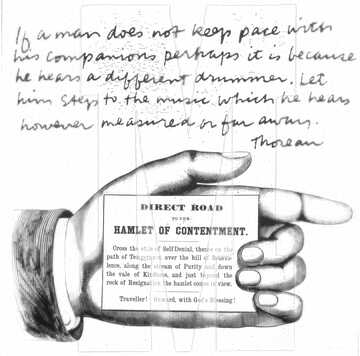 If a man does not keep pace with
his companions perhaps it is because
he hears a different drummer. Let
him step to the music which he hears
however measured or far away.
Thoreau
DIRECT ROAD
TO THE
HAMLET OF CONTENTMENT.
Cross the stile of Self Denial, thence on the
path of over the hill of
lence, along the stream of Purity and down
the vale of and just beyond the
rock of Resignation the hamlet comes in view.
Traveller! Onward, with God's Blessing!